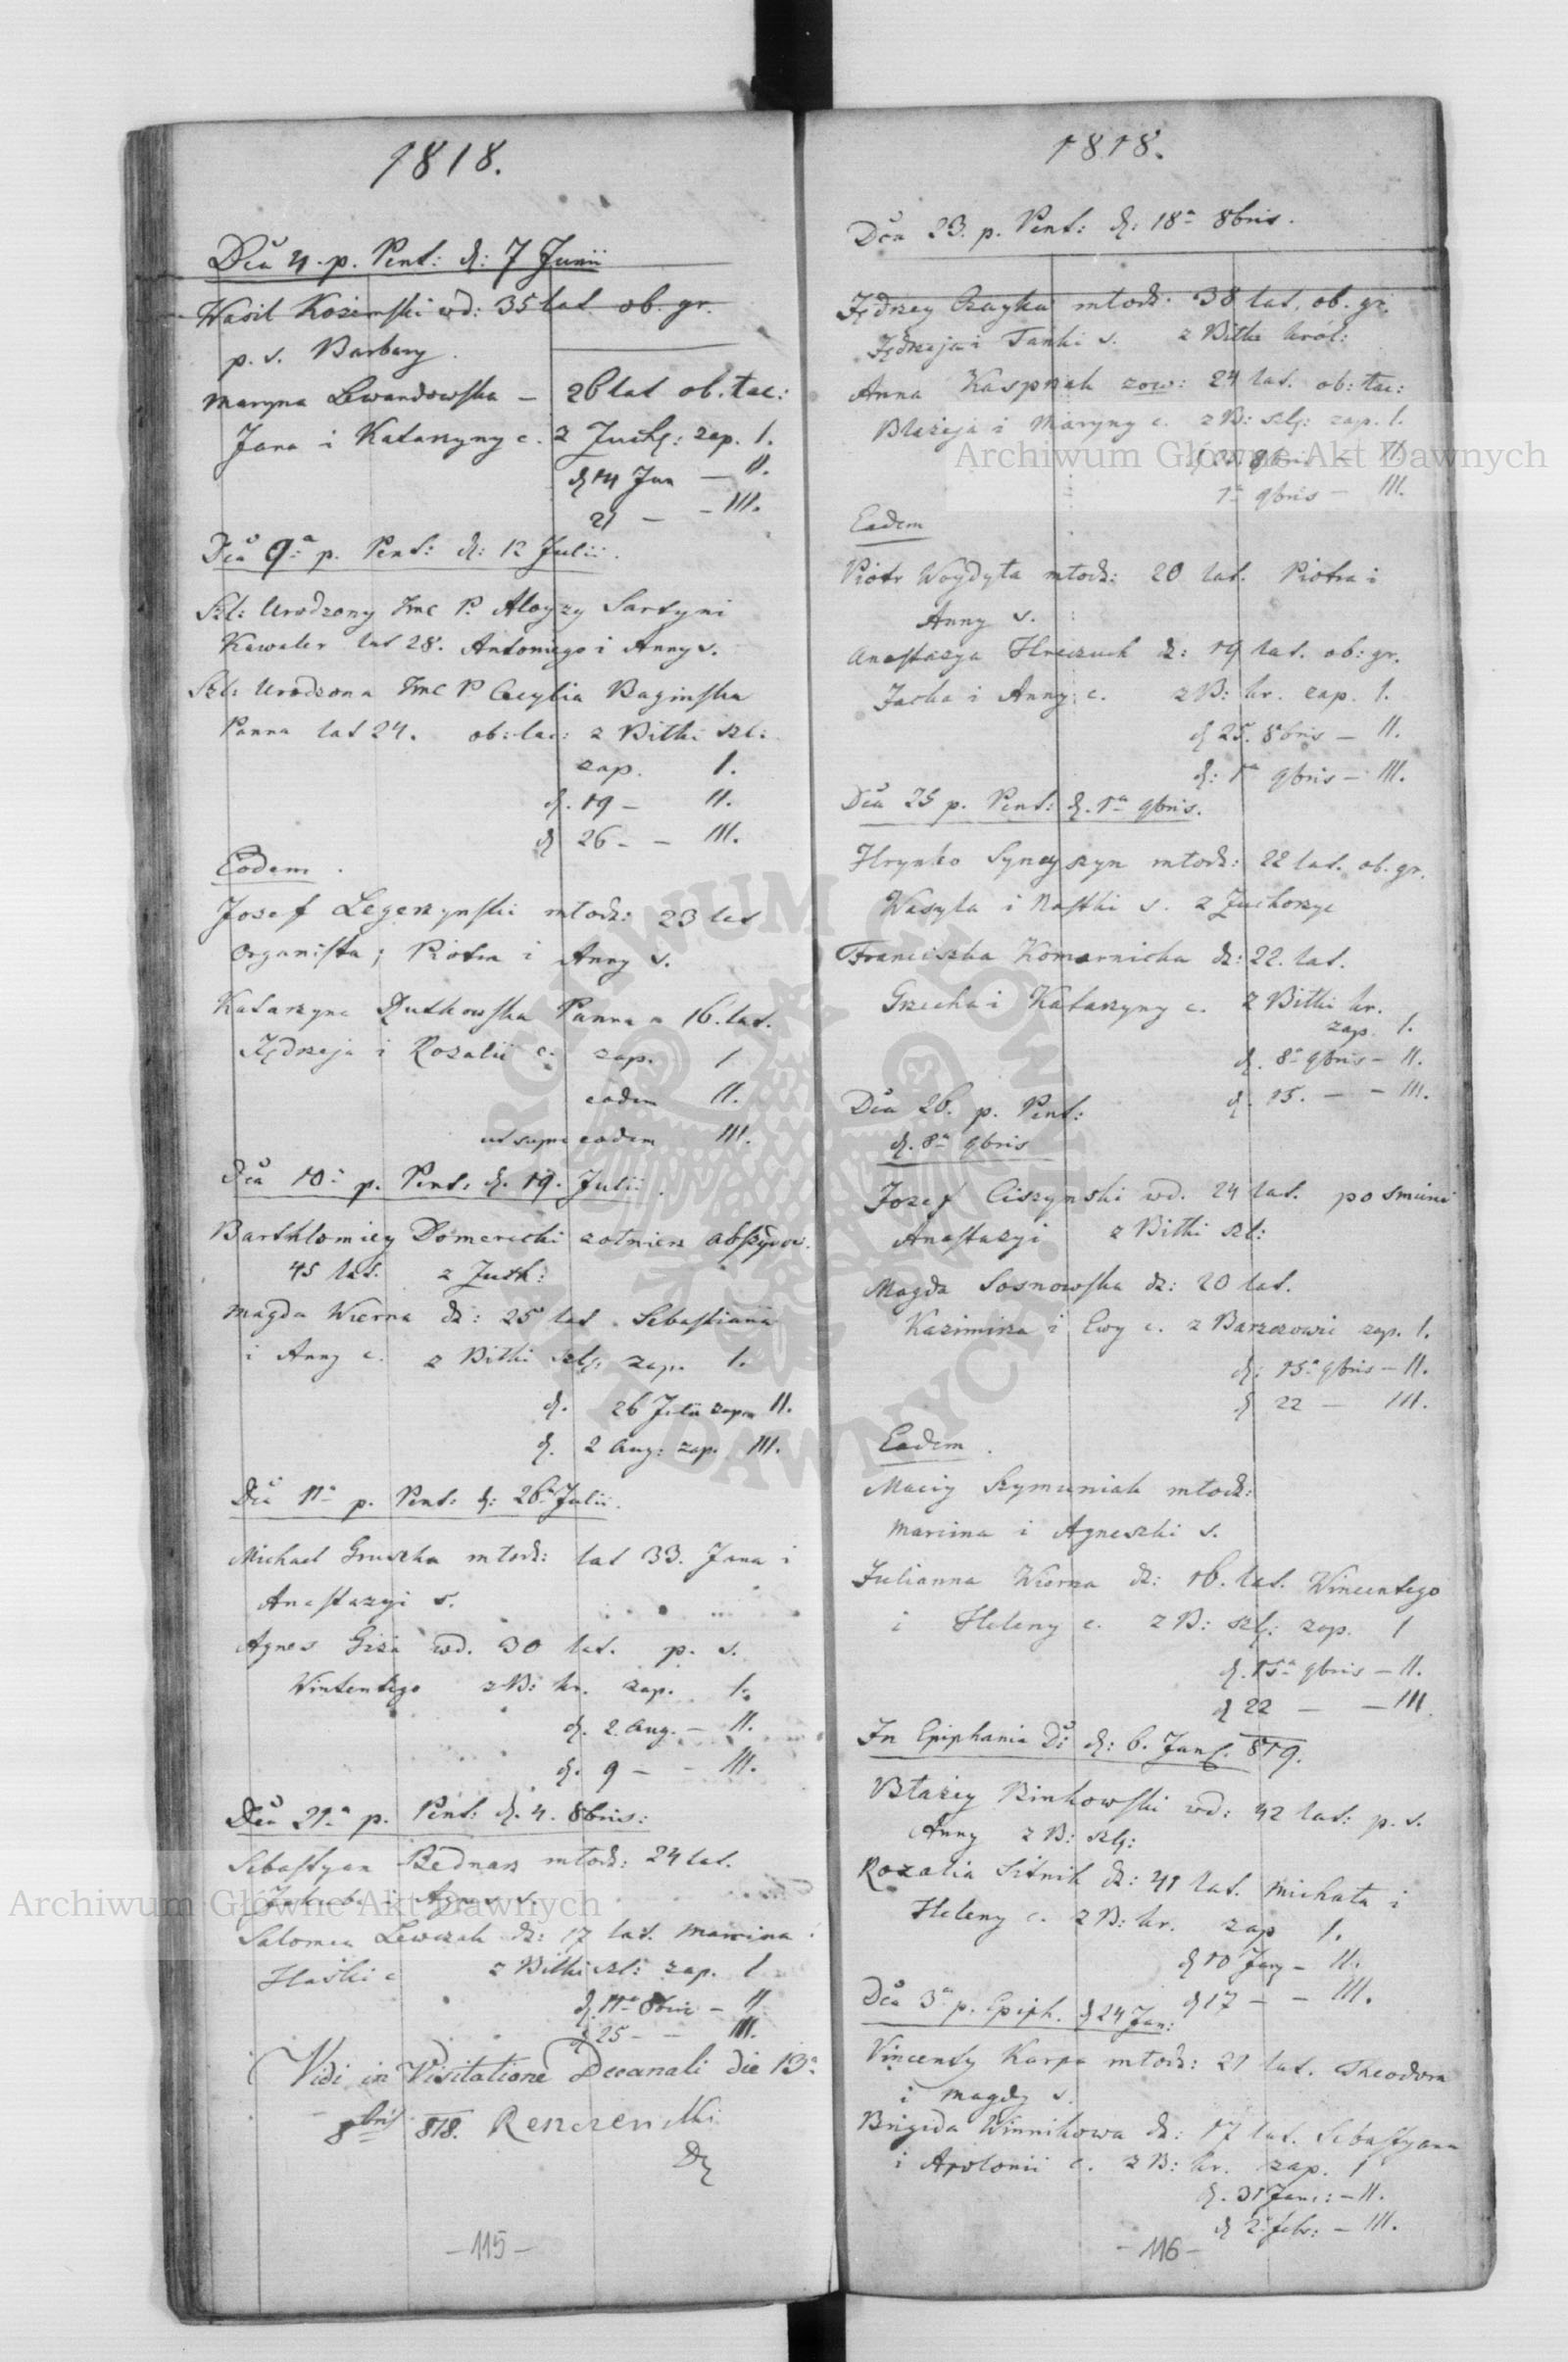 1818.
Dca 4. p. Pent: d: 7 Junii
Wasil Kozimski wd: 35 lat ob. gr.
p. s. Barbary.
Maryna Lewandowska — 26 lat ob. łac:
Jana i Katarzyny c. z Juch: zap. I.
d 14 Jun — II.
21 — — III.
Dca 9ª p. Pent: d: 12 Julii.
Szl: Urodzony Jmc P. Aloyzy Sartyni
Kawaler lat 28. Antoniego i Anny s.
Szl: Urodzona Jmc P Cecylia Baginska
Panna lat 24. ob: łac: z Bilki szl:
zap. I.
d. 19 — II.
d 26 — — III.
Eodem.
Josef Legerzynski młodz: 23 lat
Organista; Piotra i Anny s.
Katarzyna Rutkowska Panna 16. lat.
Jędrzeja i Rozalii c. zap. I
eadem II.
ut supra eadem III.
Dca 10ª p. Pent: d. 19. Julii.
Barthłomiey Domerecki zołnierz
45 lat. z Juch:
Magda Wierna dz: 25 lat. Sebastiana
i Anny c. z Bilki szl: zap. I.
d. 26 Julii zap. II.
d. 2 Aug: zap. III.
Dca 11ª p. Pent: d: 26ª Julii.
Michael Gruszka młodz: lat 33. Jana i
Anastazyi s.
Agnes Giza wd. 30 lat. p. s.
Wintentego z B: kr. zap. I.
d. 2. Aug. — II.
d. 9 — — III.
Dca 21ª p. Pent: d. 4. 8bris:
Sebastyan Bednarz młodz: 24 lat.
Jakuba i Agnes s.
Salomea Lewczak dz: 17 lat. Marcina i
Haśki c z Bilki szl: zap. I
d. 11ª 8bris — II
d 25 — — III.
Vidi in Visitatione Decanali die 13ª
8bris 818.
— 115 —
1818.
Dca 23. p. Pent: d: 18ª 8bris.
Jędrzey Czayka młodz: 38 lat. ob. gr.
Jędrzeja i Tańki s. z Bilki król:
Anna Kasprzak zow: 24 lat. ob: łac:
Błażeja i Maryny c. z B: szl: zap. I.
d 25. 8bris — II.
1ª 9bris — III.
Eadem
Piotr Woydyła młodz: 20 lat. Piotra i
Anny s.
Anastazya Hreczuch d: 19 lat. ob: gr.
Jacka i Anny c. z B: kr. zap. I.
d 25. 8bris — II.
d: 1ª 9bris — III.
Dca 25 p. Pent: d. 1ª 9bris.
Hrynko Synczyszyn młodz: 22 lat. ob. gr.
Wasyla i Nastki s. z Juchorzyc
Franciszka Komarnicka dz: 22. lat.
Grzecha i Katarzyny c. z Bilki kr.
zap. I.
d. 8ª 9bris — II.
d. 15. — — III.
Dca 26. p. Pent:
d. 8ª 9bris
Jozef Ciszynski wd. 24 lat. po smierci
Anastazyi z Bilki szl:
Magda Sosnowska dz: 20 lat.
Kazimirza i Ewy c. z Barszczowic zap. I.
d: 15ª 9bris — II.
d 22 — III.
Eadem.
Maciy Szymuniak młodz:
Marcina i Agneszki s.
Julianna Wierna dz: 16. lat. Wincentego
i Heleny c. z B: szl: zap. I
d. 15ª 9bris — II.
d 22 — — III.
In Epiphania D: d: 6. Jan. 819.
Błażey Binkowski wd: 42 lat: p. s.
Anny z B: szl:
Rozalia Sitnik dz: 41 lat. Michała i
Heleny c. z B: kr. zap I.
d 10 Jan — II.
d 17 — — III.
Dca 3ª p. Epiph. d 24 Jan:
Vincenty Karpa młodz: 21 lat. Theodora
i Magdy s.
Brigida Winnikowa dz: 17 lat. Sebastyana
i Apolonii c. z B: kr. zap. I
d. 31 Jan: — II.
d 2 febr: — III.
— 116 —
Archiwum Główne Akt Dawnych
Archiwum Główne Akt Dawnych
ARCHIWUM GŁÓWNE AKT DAWNYCH